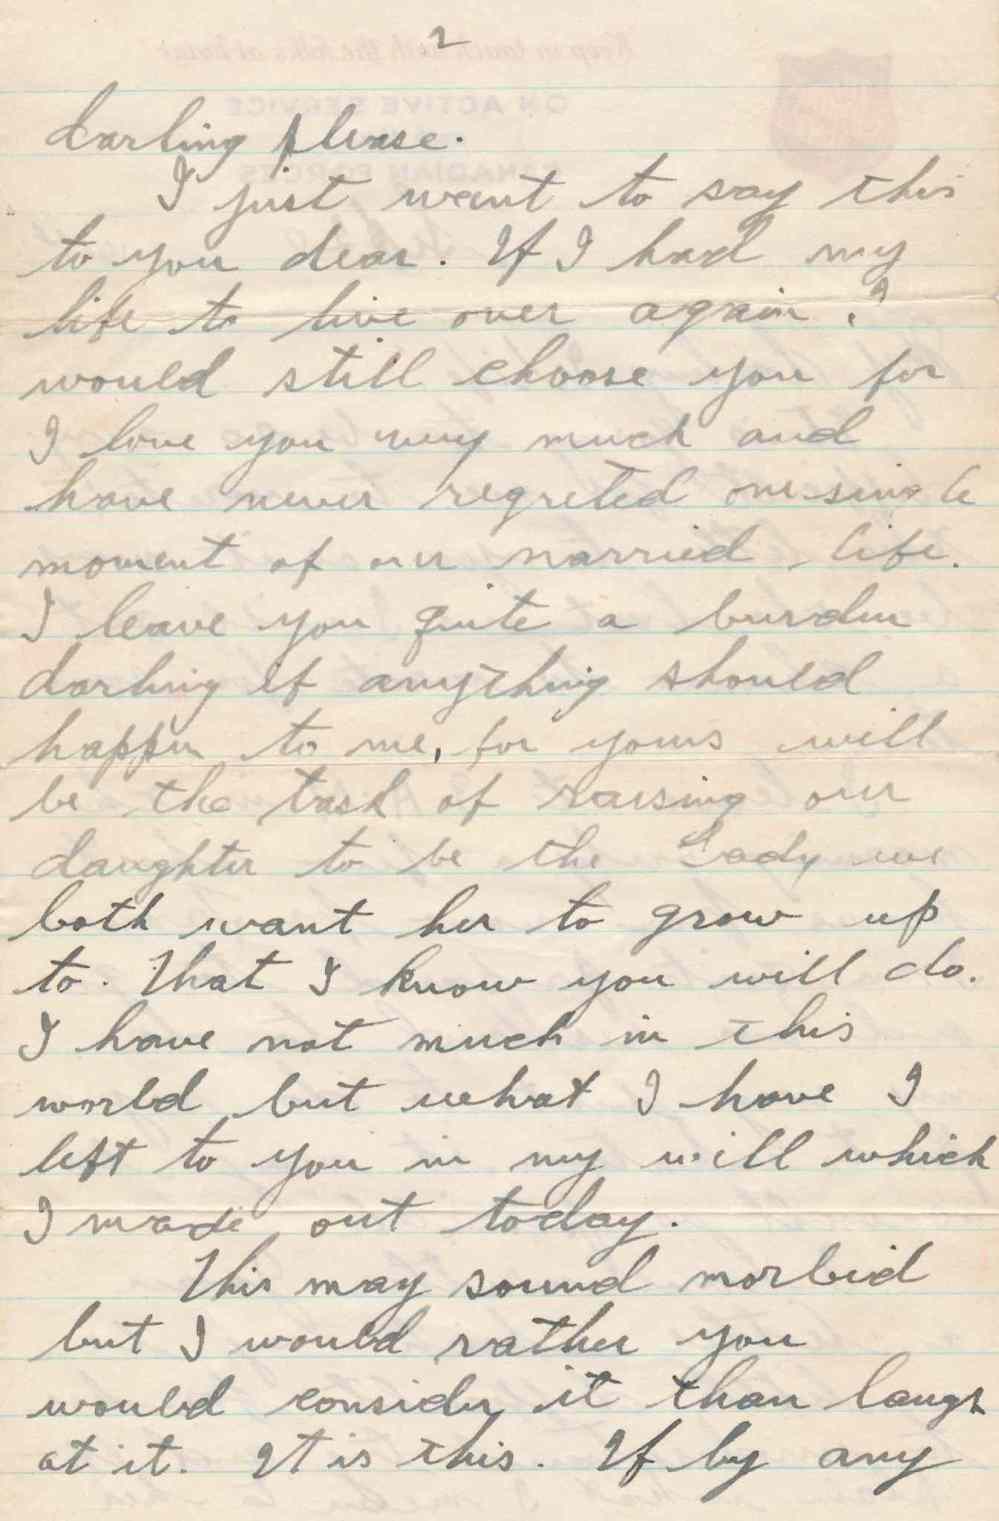 2
darling please.
I just want to say this
to you dear. If I had my
life to live over again I
would still choose you for
I love you very much and
have never regreted one single
moment of our married life.
I leave you quite a burden
darling if anything should
happen to me, for yours will
be the task of raising our
daughter to be the Lady we
both want her to grow up
to. That I know you will do.
I have not much in this
world but what I have I
left to you in my will which
I made out today.
This may sound morbid
but I would rather you
would consider it than laugh
at it. It is this. If by any